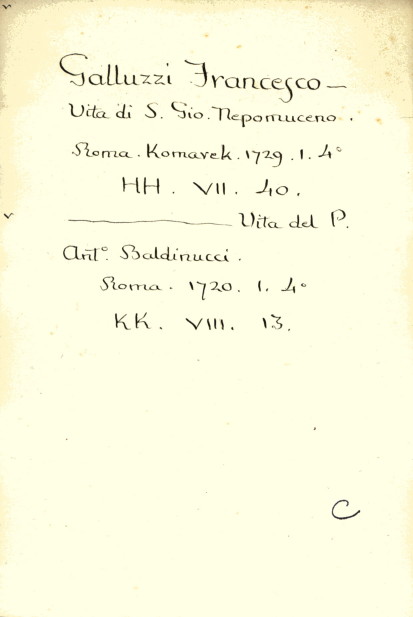 Galluzzi Francesco —
Vita di S. Gio. Nepomuceno.
Roma. Komarek. 1729. 1. 4°
HH. VII. 40.
——— Vita del P.
Ant°. Baldinucci.
Roma. 1720. 1. 4°
KK. VIII. 13.
C